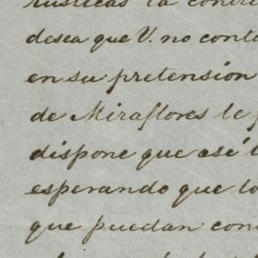 rústicas la contri
desea que V. no conte
en su pretensión
de Miraflores le
dispone que asé l
esperando que lo
que puedan con